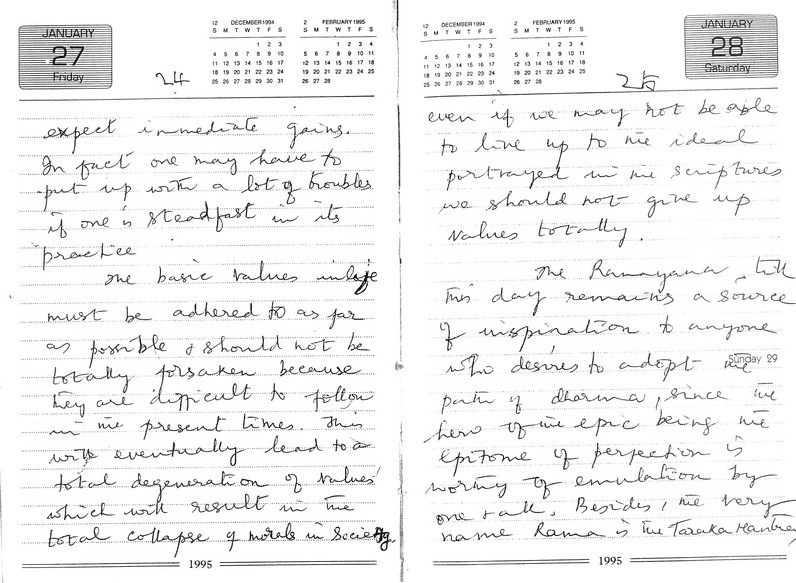 JANUARY
27
Friday
12 DECEMBER 1994
S M T W T F S
1 2 3
4 5 6 7 8 9 10
11 12 13 14 15 16 17
18 19 20 21 22 23 24
25 26 27 28 29 30 31
2 FEBRUARY 1995
S M T W T F S
1 2 3 4
5 6 7 8 9 10 11
12 13 14 15 16 17 18
19 20 21 22 23 24 25
26 27 28
24
expect immediate gains.
In fact one may have to
put up with a lot of troubles
if one is steadfast in its
practice
The basic values in life
must be adhered to as far
as possible & should not be
totally forsaken because
they are difficult to follow
in the present times. This
will eventually lead to a
total degeneration of values
which will result in the
total collapse of morals in society.
1995
12 DECEMBER 1994
S M T W T F S
1 2 3
4 5 6 7 8 9 10
11 12 13 14 15 16 17
18 19 20 21 22 23 24
25 26 27 28 29 30 31
2 FEBRUARY 1995
S M T W T F S
1 2 3 4
5 6 7 8 9 10 11
12 13 14 15 16 17 18
19 20 21 22 23 24 25
26 27 28
JANUARY
28
Saturday
25
even if we may not be able
to live up to the ideal
portrayed in the scriptures
we should not give up
values totally.
The Ramayana, till
this day remains a source
of inspiration to anyone
who desires to adopt the
Sunday 29
path of dharma, since the
hero of the epic being the
epitome of perfection is
worthy of emulation by
one & all. Besides, the very
name Rama is the Taraka Mantra,
1995